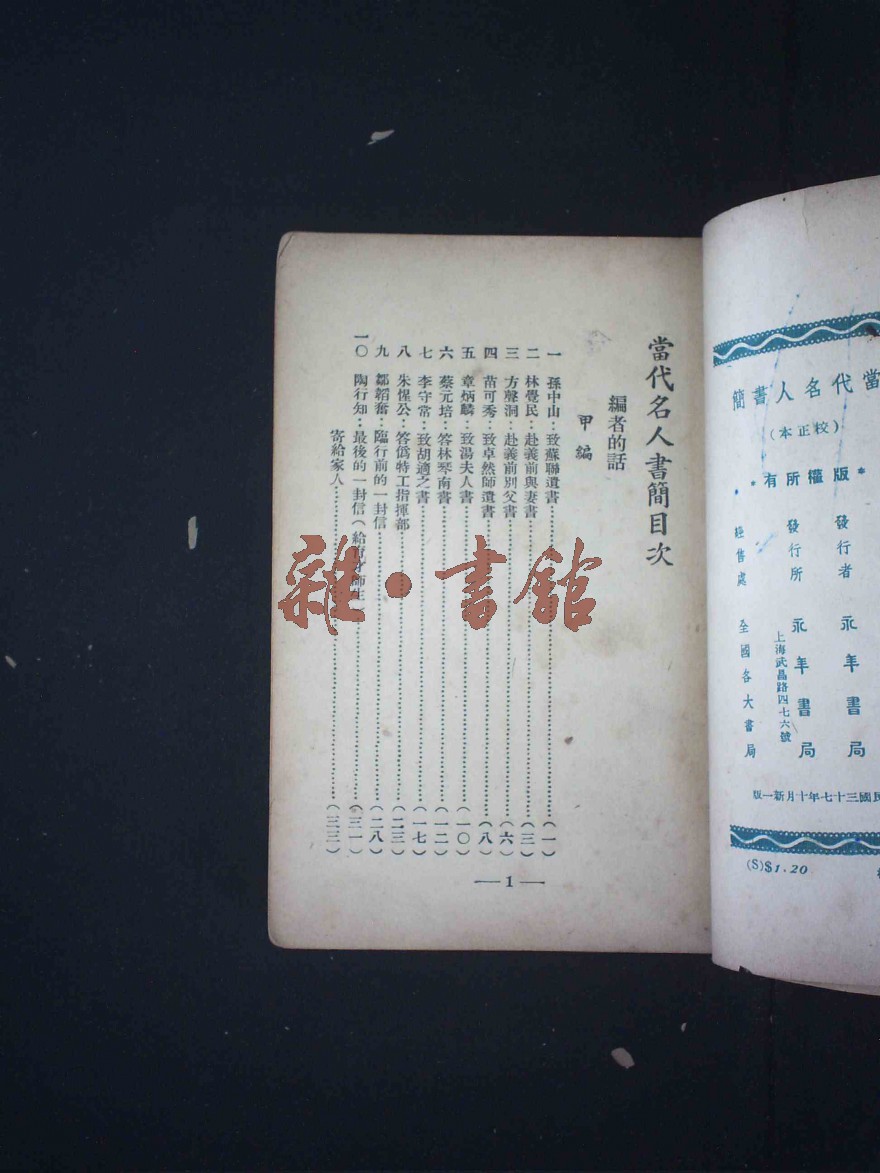 當代名人書簡
（校正本）
*版權所有*
發行者 永年書局
發行所 永年書局
上海武昌路四七六號
經售處 全國各大書局
民國三十七年十月新一版
(S)$1.20
當代名人書簡目次
編者的話
甲編
一 孫中山：致蘇聯遺書……（一）
二 林覺民：赴義前與妻書……（三）
三 方聲洞：赴義前別父書……（六）
四 苗可秀：致卓然師遺書……（八）
五 章炳麟：致湯夫人書……（一〇）
六 蔡元培：答林琴南書……（一二）
七 李守常：致胡適之書……（一七）
八 朱惺公：答僞特工指揮部……（二三）
九 鄒韜奮：臨行前的一封信……（二八）
一〇 陶行知：最後的一封信（給師生……（三一）
寄給家人……（三三）
—1—
雜·書館